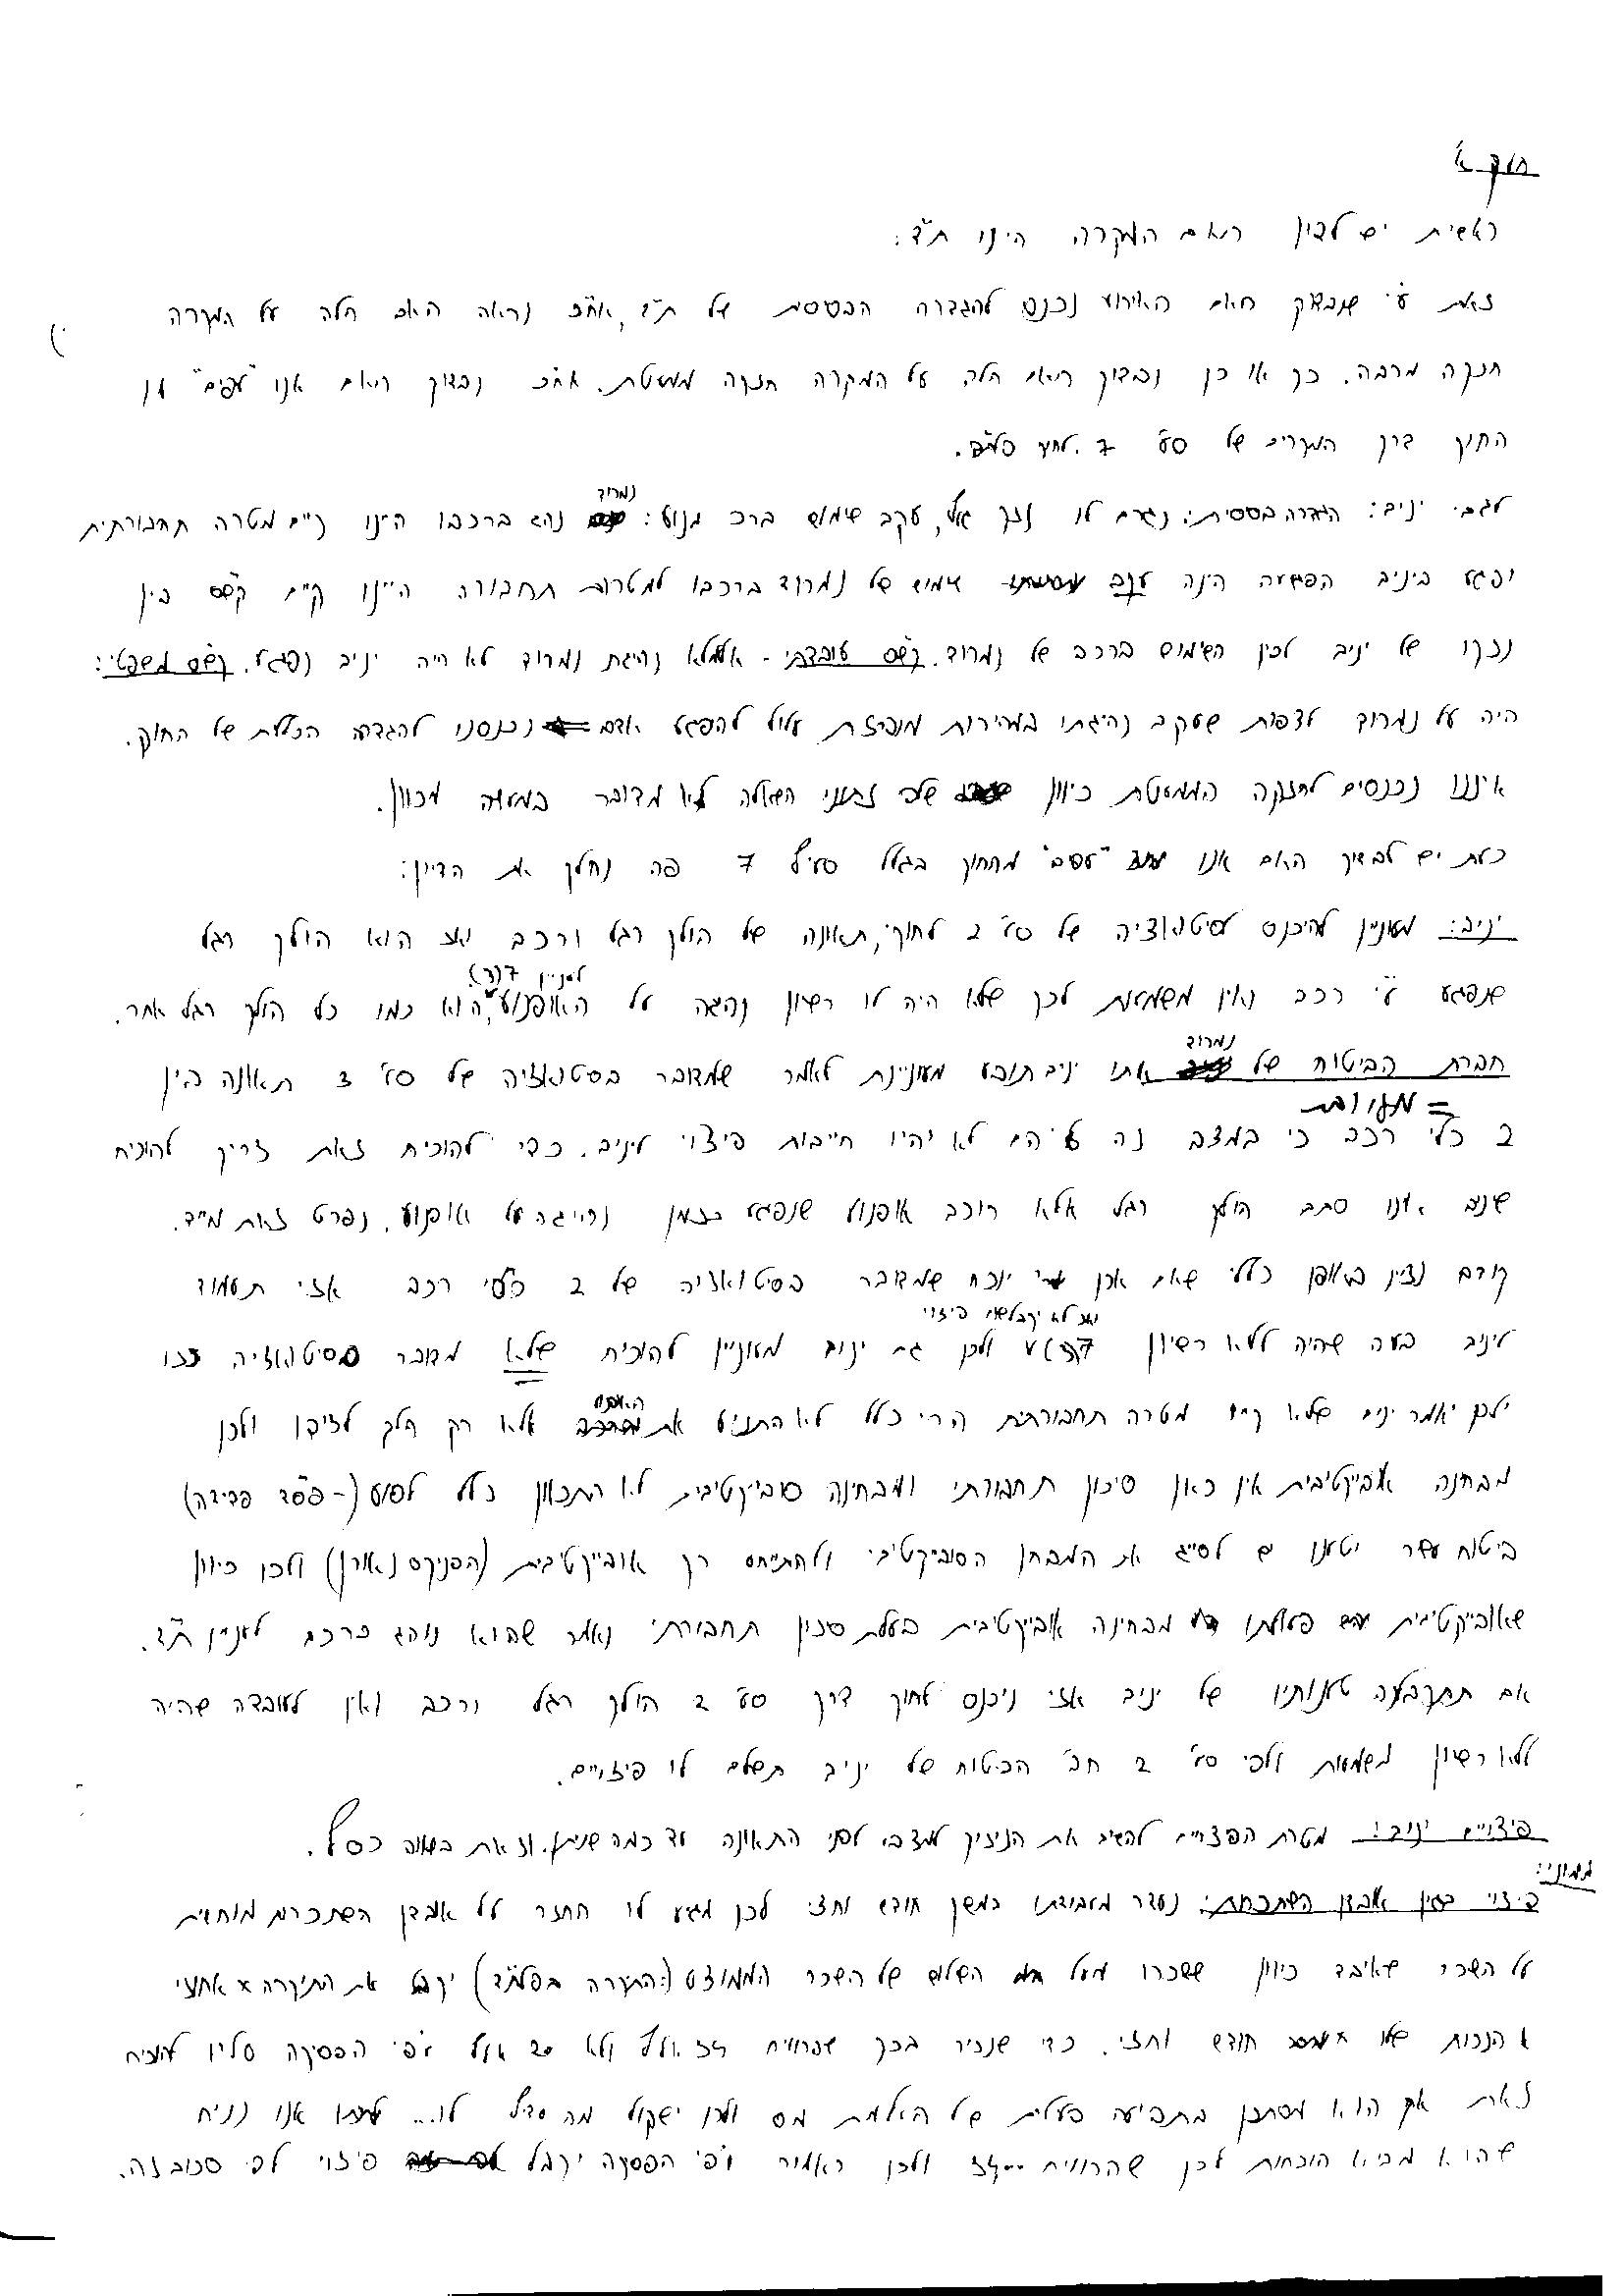 חלק א'
ראשית יש לבחון האם המקרה הינו ת"ד:
זאת ע"י שנבדוק האם האירוע נכנס להגדרה הבסיסית של ת"ד, אח"כ נראה האם חלה על המקרה
חזקה מרבה. כך או כן נבדוק האם חלה על המקרה חזקה ממעטת. אח"כ נבדוק האם אנו "עפים" מן
החוק דרך המקרים של סע' 7 לחוק פלת"ד.
לגבי יניב: הגדרה בסיסית: נגרם לו נזק גוף, עקב שימוש ברכב מנועי: נמרוד נהג ברכבו היינו קיים מטרה תחבורתית
ופגע ביניב הפגיעה הינה עקב שימוש של נמרוד ברכבו למטרות תחבורה היינו קיים קש"ס בין
נזקו של יניב לבין השימוש ברכב של נמרוד. קש"ס עובדתי - אלמלא נהיגת נמרוד לא היה יניב נפגע. קש"ס משפטי:
היה על נמרוד לצפות שעקב נהיגתו במהירות מופרזת עלול להפגע אדם נכנסנו להגדרה הכללית של החוק.
איננו נכנסים לחזקה הממעטת כיוון שלפי נתוני השאלה לא מדובר במעשה מכוון.
כעת יש לבדוק האם אנו "עפים" מהחוק בגלל סעיף 7 פה נחלק את הדיון:
יניב: מעוניין להיכנס לסיטואציה של סע' 2 לחוק, תאונה של הולך רגל ורכב ואז הוא הולך רגל
שנפגע ע"י רכב ואין משמעות לכך שלא היה לו רשיון נהיגה על האופנוע לעניין 7(3), הוא כמו כל הולך רגל אחר.
חברת הביטוח של נמרוד אותו יניב תובע מעוניינת לאמר שמדובר בסיטואציה של סע' 3 תאונה בין
= מעורבות
2 כלי רכב כי במצב זה הם לא יהיו חייבות פיצוי ליניב. כדי להוכיח זאת צריך להוכיח
שיניב אינו סתם הולך רגל אלא רוכב אופנוע שנפגע בזמן נהייגה על אופנוע. נפרט זאת מייד.
קודם נציין באופן כללי שאם אכן יוכח שמדובר בסיטואציה של 2 כלי רכב אזי תעמוד
ליניב בעיה שהיה ללא רשיון 7(3) ואז לא יקבל פיצוי ולכן גם יניב מעוניין להוכיח שלא מדובר בסיטואציה כזו
ולכן יאמר יניב שלא קיים מטרה תחבורתית הרי כלל לא התניע את האופנוע אלא רק הלך לצידו ולכן
מבחינה אובייקטיבית אין כאן סיכון תחבורתי ומבחינה סובייקטיבית לא התכוון כלל לנסוע (- פס"ד פדידה)
ביטוח ישר יטענו יש לסייג את המבחן הסובייקטיבי ולהתייחס רק אובייקטיבית (הפניקס נ' אורן) ולכן כיוון
שאובייקטיבית פעולתו מבחינה אובייקטיבית בעלת סיכון תחבורתי נאמר שהוא נוהג ברכב לעניין ת"ד.
אם תתקבלנה טענותיו של יניב אזי ניכנס לחוק דרך סע' 2 הולך רגל ורכב ואין לעובדה שהיה
ללא רשיון משמעות ולפי סע' 2 חב' הביטוח של יניב תשלם לו פיצויים.
פיצויים יניב: מטרת הפצויים להשיב את הניזוק למצבו לפני התאונה עד כמה שניתן. וזאת בשווה כסף.
ממוני:
פיצוי בגין אובדן השתכרות: נעדר מעבודתו במשך חודש וחצי לכן מגיע לו החזר על אובדן השתכרות מוחשית
על השכר שאיבד כיוון ששכרו מעל השילוש של השכר הממוצע (התקרה בפלת"ד) יקבל את התיקרה x אחוזי
הנכות שלו x חודש וחצי. כדי שנכיר בכך שהרוויח 25 אלף ולא 20 אלף לפי הפסיקה עליו להוכיח
זאת אך הוא מסתכן בתביעה פלילית של העלמת מס ולכן ישקול מה עדיף לו... אנו נניח
שהוא מביא הוכחות לכך שהרוויח ולכן כאמור לפי הפסיקה יקבל פיצוי לפי סכום זה.